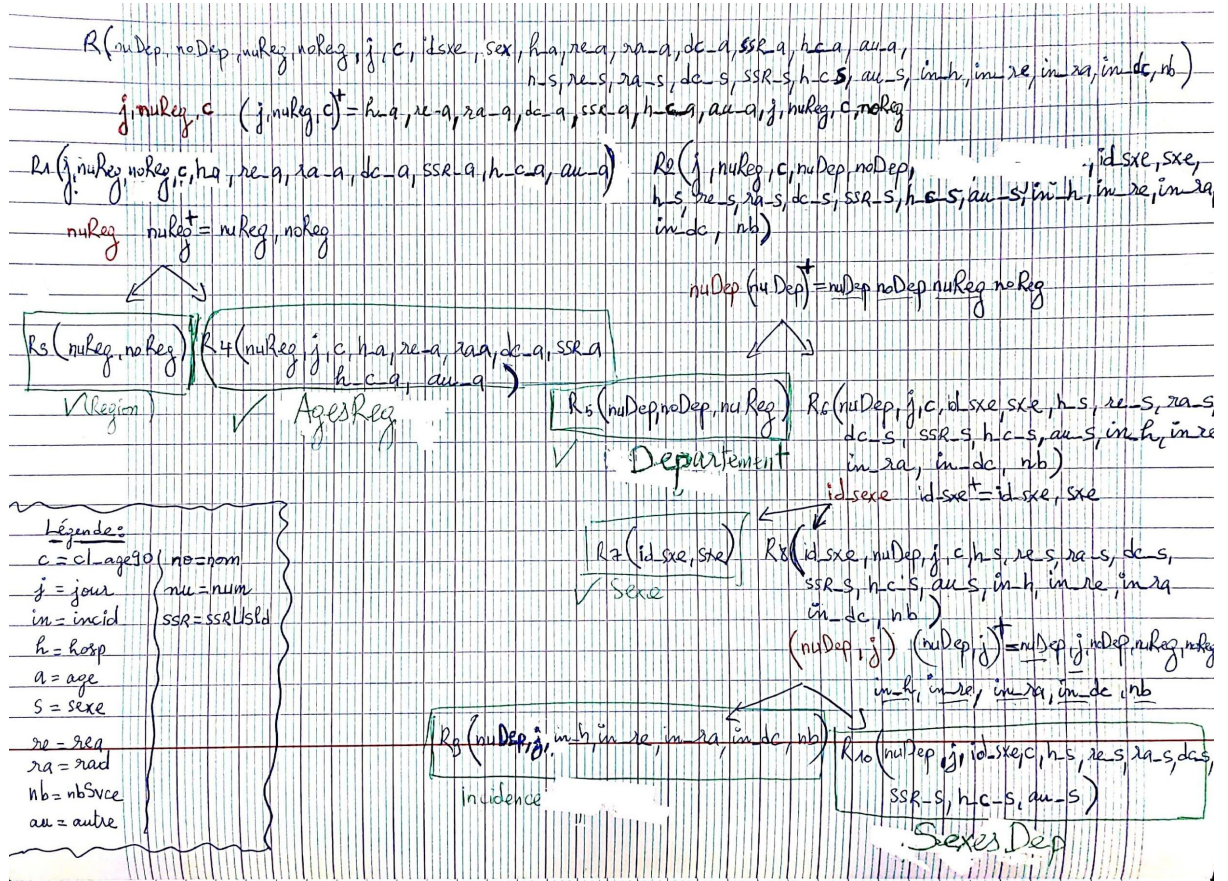 R(nuDep, noDep, nuReg, noReg, j, c, idsxe, sex, h_a, re_a, ra_a, dc_a, SSR_a, h_c_a, au_a,
h_s, re_s, ra_s, dc_s, SSR_s, h_c_s, au_s, in_h, in_re, in_ra, in_dc, nb)
j, nuReg, c (j, nuReg, c)⁺ = h_a, re_a, ra_a, dc_a, ssr_a, h_c_a, au_a, j, nuReg, c, noReg
R1(j, nuReg, noReg, c, h_a, re_a, ra_a, dc_a, SSR_a, h_c_a, au_a)
R2(j, nuReg, c, nuDep, noDep, , id_sxe, sxe,
h_s, re_s, ra_s, dc_s, SSR_s, h_c_s, au_s, in_h, in_re, in_ra,
in_dc, nb)
nuReg nuReg⁺ = nuReg, noReg
nuDep (nuDep)⁺ = nuDep noDep nuReg noReg
R3(nuReg, noReg)
R4(nuReg, j, c, h_a, re_a, raa, dc_a, SSR_a
h_c_a, au_a)
✓ (Region)
✓ AgesReg
R5(nuDep, noDep, nuReg)
✓ Departement
R6(nuDep, j, c, id_sxe, sxe, h_s, re_s, ra_s,
dc_s, SSR_s, h_c_s, au_s, in_h, in re
in_ra, in_dc, nb)
id_sexe id_sxe⁺ = id_sxe, sxe
R7(id_sxe, sxe)
✓ Sexe
R8(id_sxe, nuDep, j, c, h_s, re_s, ra_s, dc_s,
SSR_s, h_c_s, au_s, in_h, in_re, in_ra
in_dc, nb)
(nuDep, j) (nuDep, j)⁺ = nuDep, j, noDep, nuReg, noReg
in_h, in_re, in_ra, in_dc, nb
R9(nuDep, j, in_h, in_re, in_ra, in_dc, nb)
incidence
R10(nuDep, j, id_sxe, c, h_s, re_s, ra_s, dc_s,
SSR_s, h_c_s, au_s)
SexesDep
Légende:
c = cl_age90 no = nom
j = jour nu = num
in = incid SSR = SSRUsld
h = hosp
a = age
s = sexe
re = rea
ra = rad
nb = nbSvce
au = autre